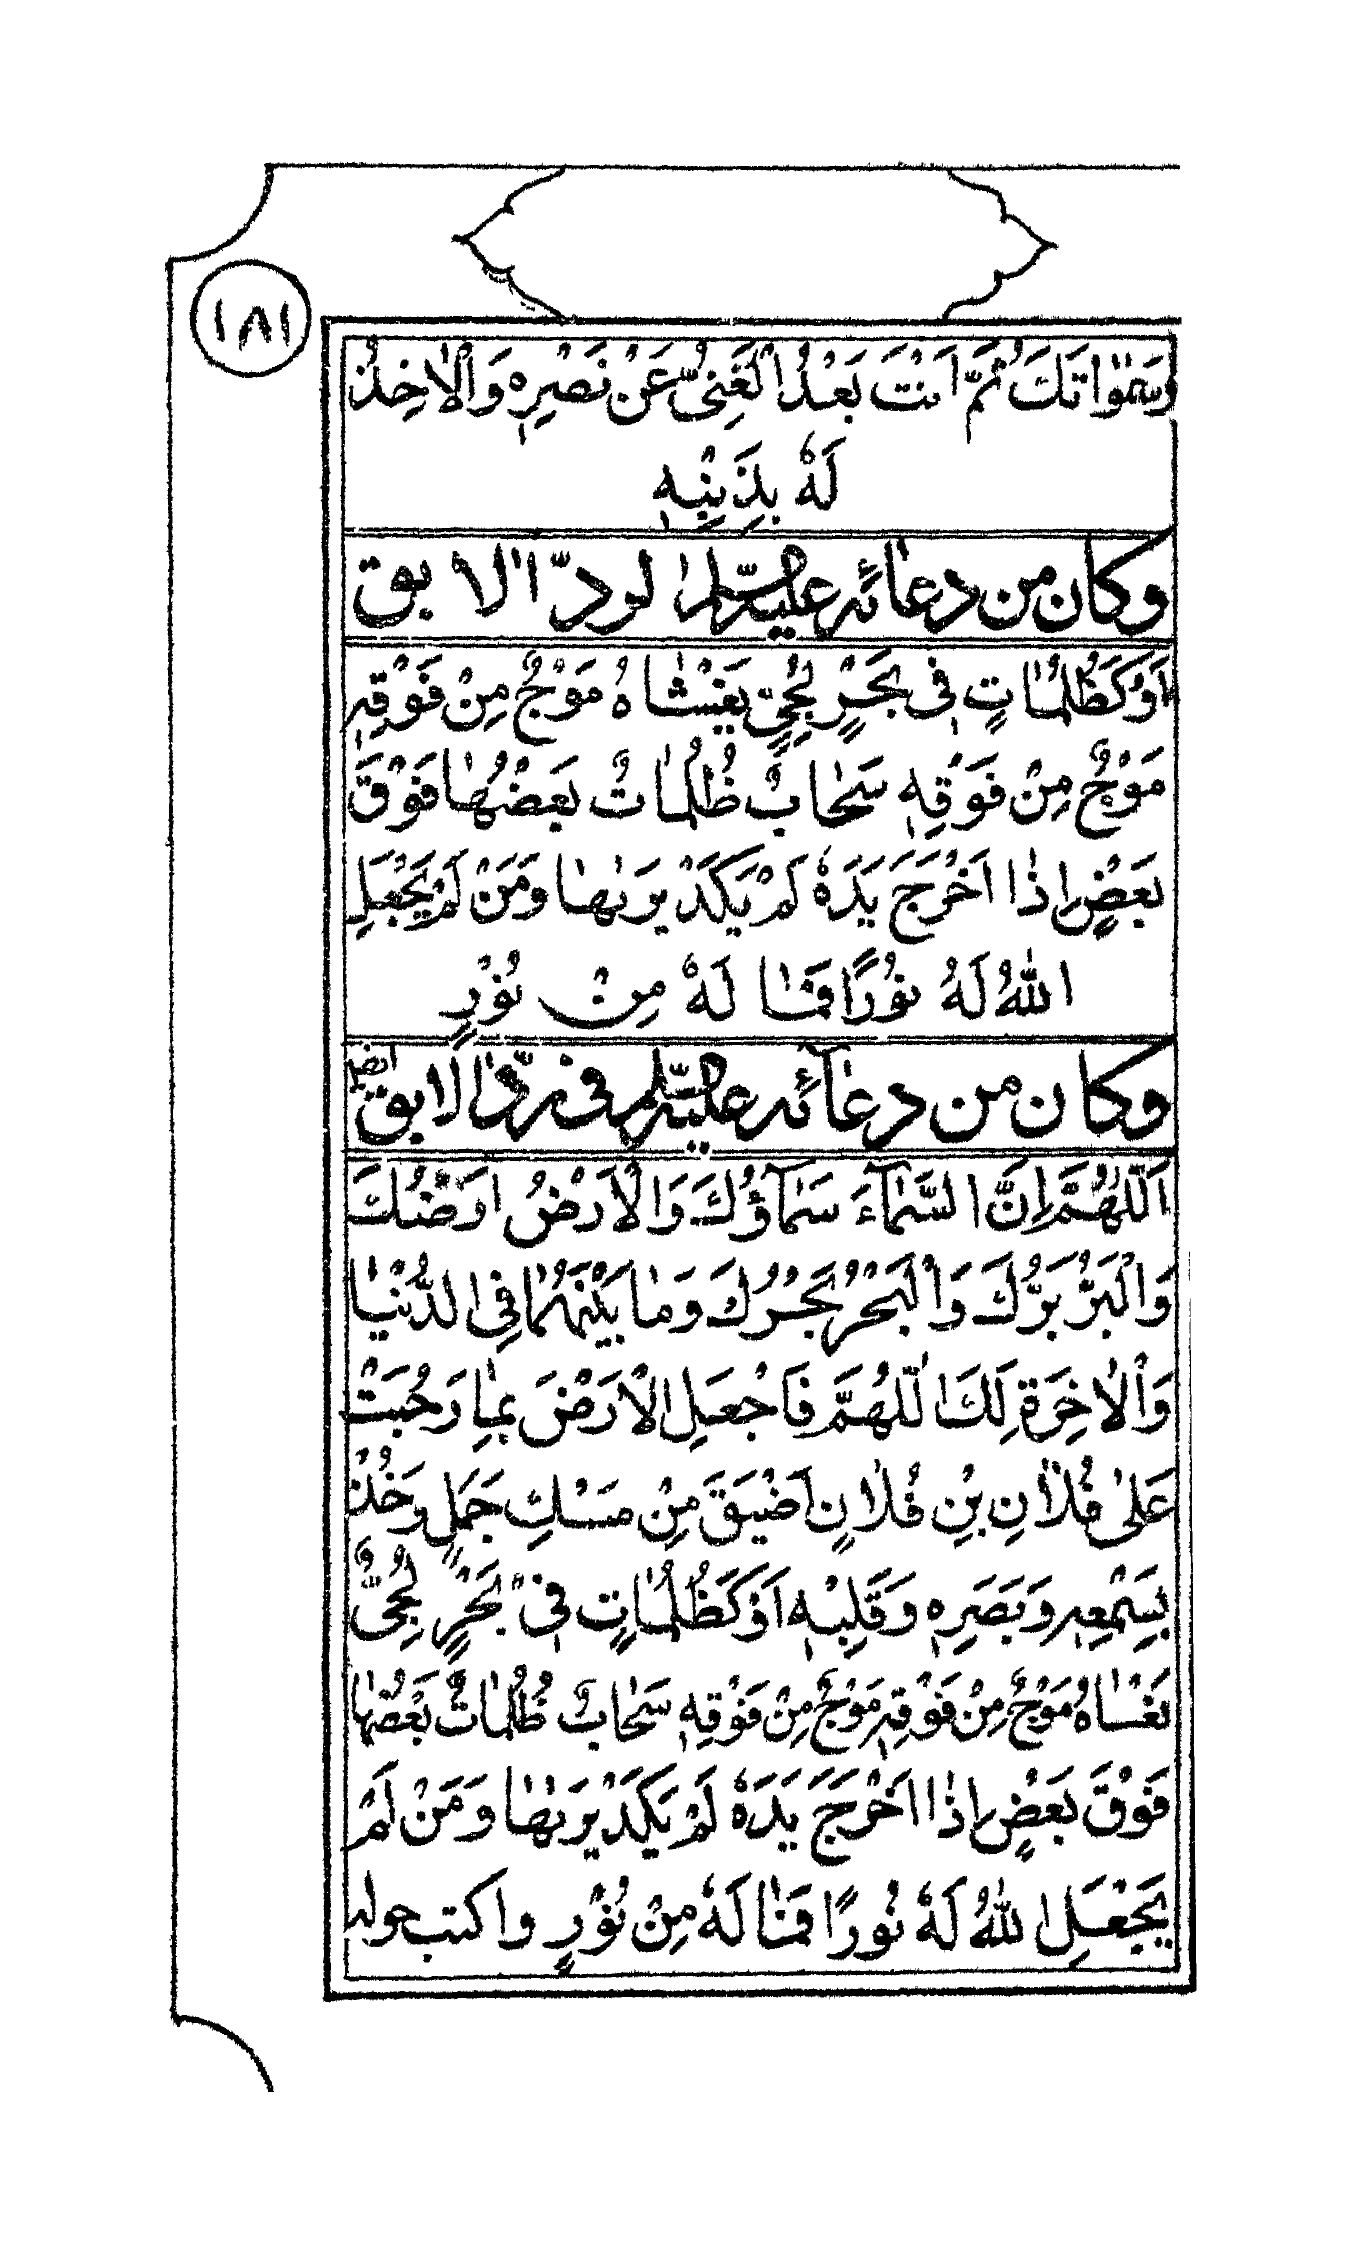 ١٨١
وَسَمٰوٰاتِكَ ثُمَّ اَنْتَ بَعْدُ الْغَنِیُّ عَنْ نَصْرِهٖ وَالْاٰخِذُ
لَهٗ بِذَنْبِهٖ
وكان من دعائه عليه السّلام لردّ الابق
اَوْ كَظُلُمٰاتٍ فٖی بَحْرٍ لُجِّیٍّ يَغْشٰاهُ مَوْجٌ مِنْ فَوْقِهٖ
مَوْجٌ مِنْ فَوْقِهٖ سَحٰابٌ ظُلُمٰاتٌ بَعْضُهٰا فَوْقَ
بَعْضٍ اِذٰا اَخْرَجَ يَدَهٗ لَمْ يَكَدْ يَرٰىهٰا وَمَنْ لَمْ يَجْعَلِ
اللّٰهُ لَهُ نُورًا فَمٰا لَهٗ مِنْ نُوْرٍ
وكان من دعائه عليه السّلم فی ردّ الابق ايضا
اَللّٰهُمَّ اِنَّ السَّمٰاۤءَ سَمٰاۤؤُكَ وَالْاَرْضَ اَرْضُكَ
وَالْبَرَّ بَرُّكَ وَالْبَحْرَ بَحْرُكَ وَمٰا بَيْنَهُمٰا فِی الدُّنْيٰا
وَالْاٰخِرَةِ لَكَ اللّٰهُمَّ فَاجْعَلِ الْاَرْضَ بِمٰا رَحُبَتْ
عَلٰى فُلٰانِ بْنِ فُلٰانٍ اَضْيَقَ مِنْ مَسْكِ جَمَلٍ وَخُذْ
بِسَمْعِهٖ وَبَصَرِهٖ وَقَلْبِهٖ اَوْ كَظُلُمٰاتٍ فٖی بَحْرٍ لُجِّیٍّ
يَغْشٰاهُ مَوْجٌ مِنْ فَوْقِهٖ مَوْجٌ مِنْ فَوْقِهٖ سَحٰابٌ ظُلُمٰاتٌ بَعْضُهٰا
فَوْقَ بَعْضٍ اِذٰا اَخْرَجَ يَدَهٗ لَمْ يَكَدْ يَرٰىهٰا وَمَنْ لَمْ
يَجْعَلِ اللّٰهُ لَهٗ نُورًا فَمٰا لَهٗ مِنْ نُوْرٍ واكتب حوله